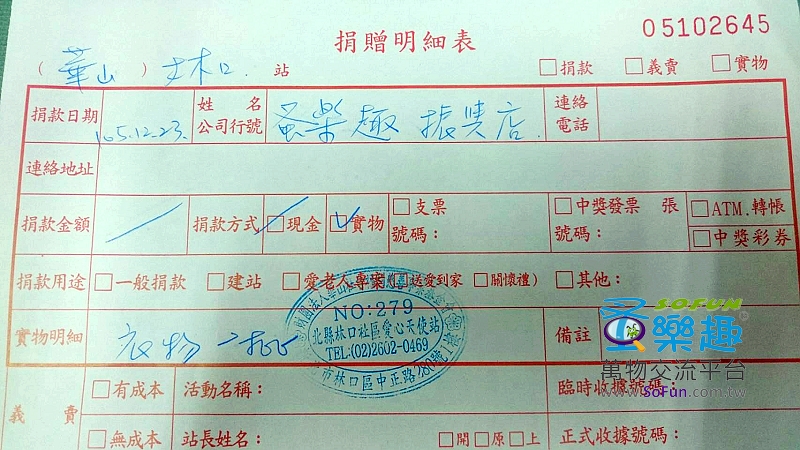 捐贈明細表
05102645
(華山)林口 站 □捐款 □義賣 □實物
捐款日期 105.12.23.
姓 名
公司行號
蚤樂趣 店
連絡
電話
連絡地址
捐款金額 捐款方式 □現金 □實物
□支票
號碼：
□中獎發票 張
號碼：
□ATM.轉帳
□中獎彩券
捐款用途 □一般捐款 □建站 □愛老人專案( 送愛到家 □關懷禮) □其他：
實物明細 衣物一批
備註
NO:279
北縣林口社區愛心天使站
TEL:(02)2602-0469
市林口區中正路280號1樓
SOFUN
蚤樂趣
萬物交流平台
www.SoFun.com.tw
義 賣
□有成本 活動名稱： 臨時收據號碼：
□無成本 站長姓名： □開□原□上 正式收據號碼：